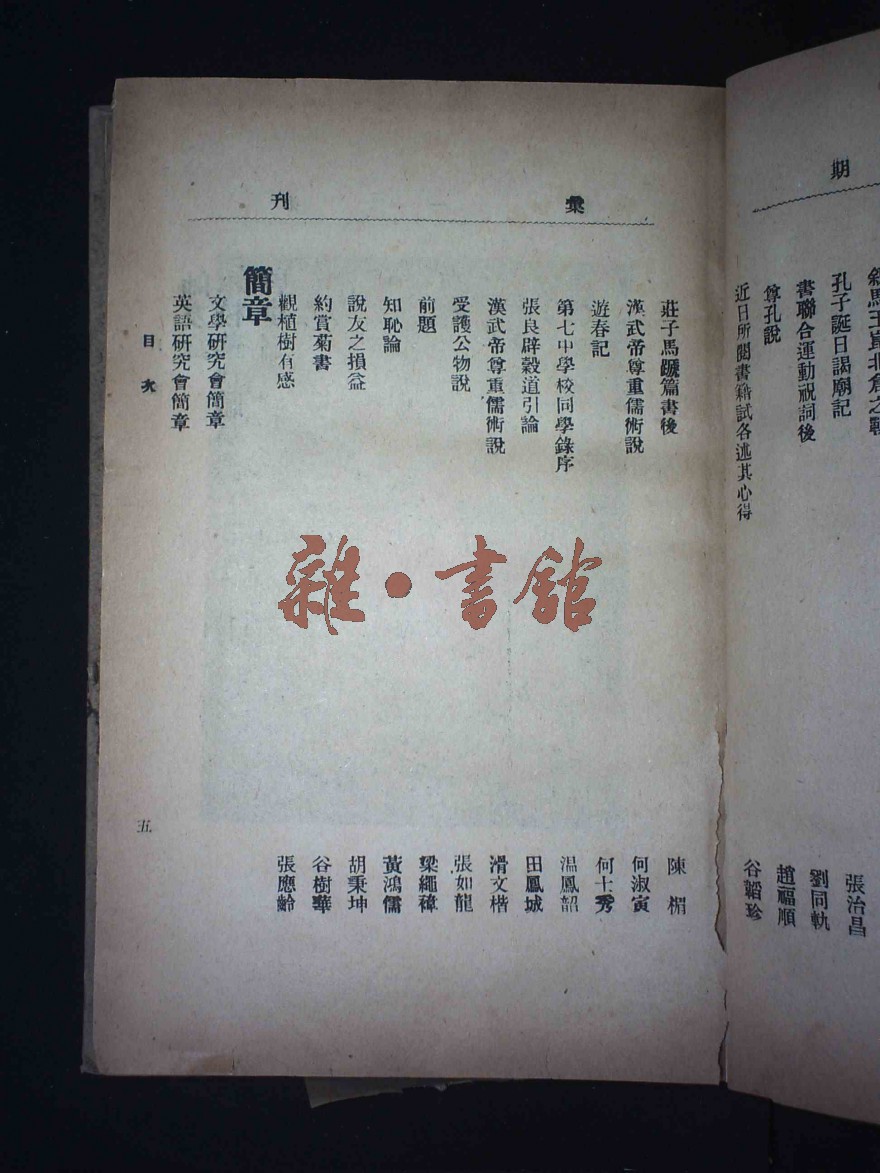 期
孔子誕日謁廟記
張治昌
書聯合運動祝詞後
劉同軌
尊孔說
趙福順
近日所閱書籍試各述其心得
谷韜珍
彙刊
莊子馬蹏篇書後
陳楣
漢武帝尊重儒術說
何淑寅
遊春記
何士秀
第七中學校同學錄序
温鳳韶
張良辟穀道引論
田鳳城
漢武帝尊重儒術說
滑文楷
受護公物說
張如龍
前題
梁繩褘
知恥論
黃鴻儒
說友之損益
胡秉坤
約賞菊書
谷樹華
觀植樹有感
張應齡
簡章
文學研究會簡章
英語研究會簡章
目次
五
雜·書館